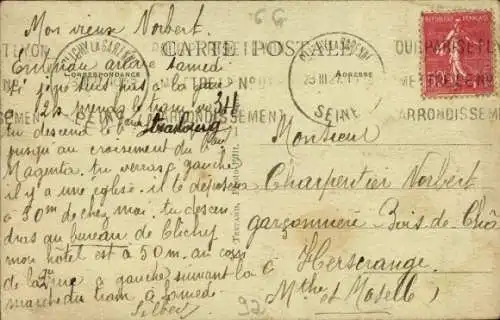 66
Mon vieux Norbert.
CLICHY LA GARENNE
CARTE POSTALE
CORRESPONDANCE
ADRESSE
SEINE
ARRONDISSEMENT
REPUBLIQUE FRANCAISE
Entendu arrive samedi
si je ne suis pas à la gare
prends le tram 34
tu descend le Bard Strasbourg
jusqu'au croisement du Bard
Magenta, tu verras à gauche
il y a une église. il te déposera
à 30m de chez moi. tu descen
dras au bureau de Clichy
mon hôtel est à 50 m. au coin
de la 2me rue à gauche suivant la
marche du tram à samedi
Monsieur
Charpentier Norbert
garçonnière Bois de Cha
à Herserange
Mthe & Moselle
92